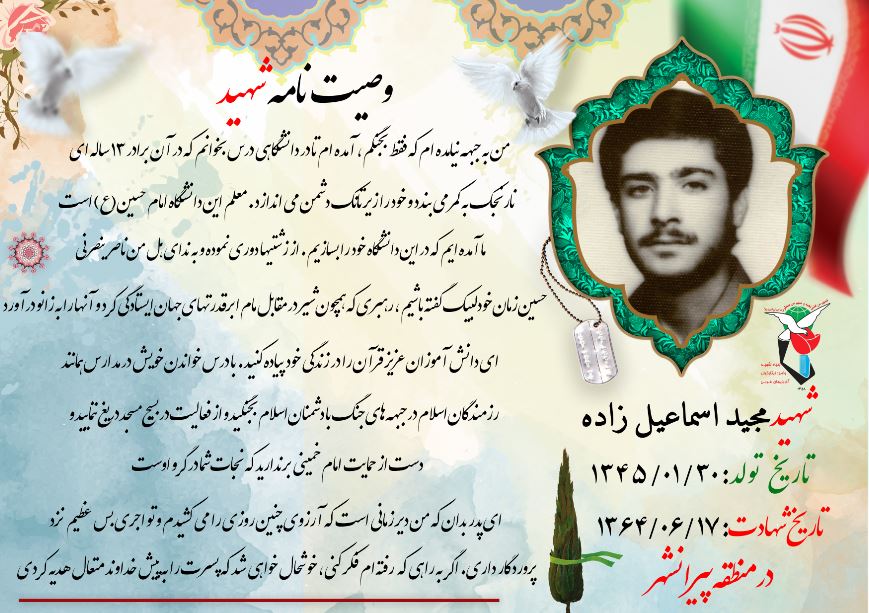 وصیت نامه شهید
من به جبهه نیامده ام که فقط بجنگم ، آمده ام تا در دانشگاهی درس بخوانم که در آن برادر ۱۳ ساله ای
نارنجک به کمر می بندد و خود را زیر تانک دشمن می اندازد . معلم این دانشگاه امام حسین (ع) است
ما آمده ایم که در این دانشگاه خود را بسازیم . از زشتیها دوری نموده و به ندای هل من ناصر ینصرنی
حسین زمان خود لبیک گفته باشیم ، رهبری که همچون شیر در مقابل تمام ابرقدرتهای جهان ایستادگی کرد و آنها را به زانو در آورد
ای دانش آموزان عزیز قرآن را در زندگی خود پیاده کنید . با درس خواندن خویش در مدارس بمانند
رزمندگان اسلام در جبهه های جنگ با دشمنان اسلام بجنگید و از فعالیت در بسیج مسجد دریغ ننمایید و
دست از حمایت امام خمینی برندارید که نجات شما در گرو اوست
ای پدر بدان که من دیر زمانی است که آرزوی چنین روزی را می کشیدم و تو اجری بس عظیم نزد
پروردگار داری . اگر به راهی که رفته ام فکر کنی ، خوشحال خواهی شد که پسرت را به پیش خداوند متعال هدیه کردی
شهید مجید اسماعیل زاده
تاریخ تولد: ۱۳۴۵/۰۱/۳۰
تاریخ شهادت: ۱۳۶۴/۰۶/۱۷
در منطقه پیرانشهر